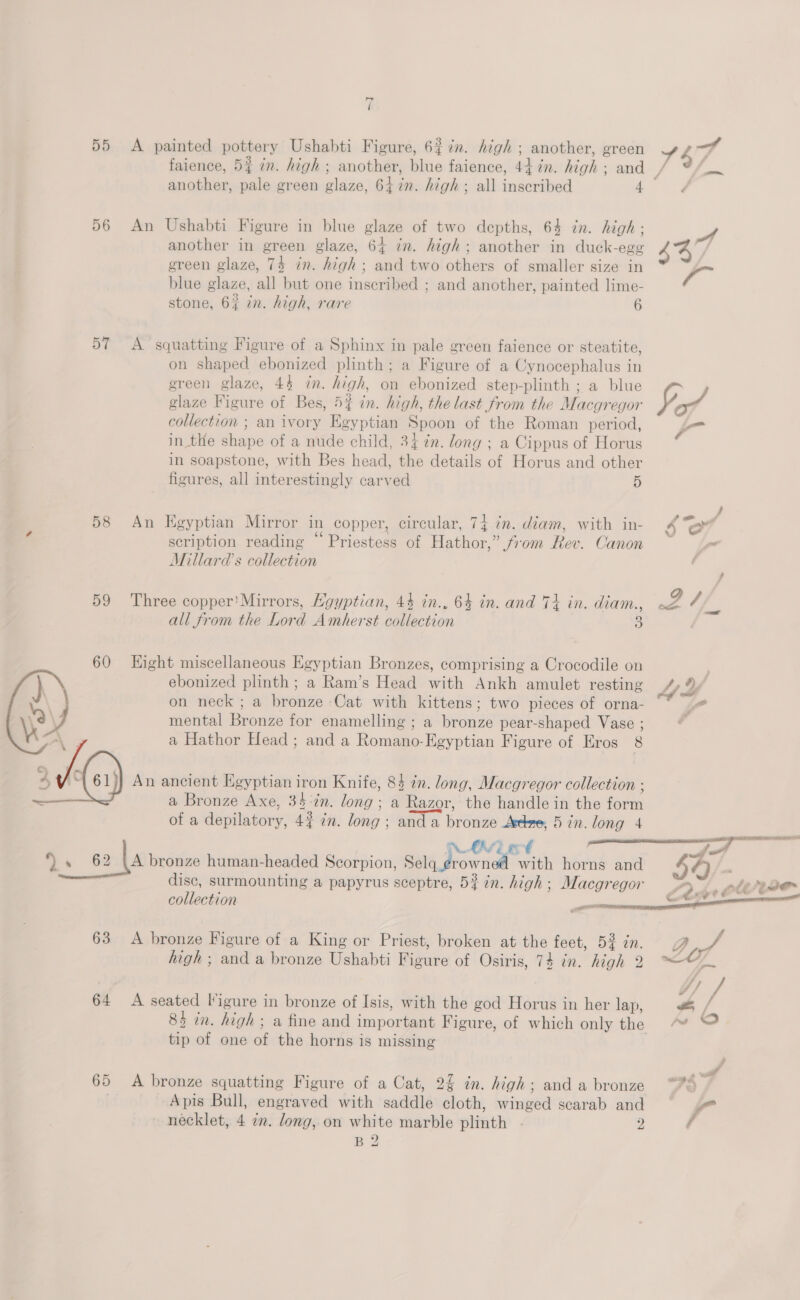 7
55 A painted pottery Ushabti Figure, 6¾ in. high; another, green
faience, 5¾ in. high; another, blue faience, 4¼ in. high; and
another, pale green glaze, 6¼ in. high; all inscribed 4
56 An Ushabti Figure in blue glaze of two depths, 6½ in. high;
another in green glaze, 6¼ in. high; another in duck-egg
green glaze, 7½ in. high; and two others of smaller size in
blue glaze, all but one inscribed; and another, painted lime-
stone, 6¾ in. high, rare 6
57 A squatting Figure of a Sphinx in pale green faience or steatite,
on shaped ebonized plinth; a Figure of a Cynocephalus in
green glaze, 4½ in. high, on ebonized step-plinth; a blue
glaze Figure of Bes, 5¾ in. high, the last from the Macgregor
collection; an ivory Egyptian Spoon of the Roman period,
in the shape of a nude child, 3¼ in. long; a Cippus of Horus
in soapstone, with Bes head, the details of Horus and other
figures, all interestingly carved 5
58 An Egyptian Mirror in copper, circular, 7¼ in. diam, with in-
scription reading “Priestess of Hathor,” from Rev. Canon
Millard's collection
59 Three copper Mirrors, Egyptian, 4½ in., 6½ in. and 7¼ in. diam.,
all from the Lord Amherst collection 3
60 Eight miscellaneous Egyptian Bronzes, comprising a Crocodile on
ebonized plinth; a Ram's Head with Ankh amulet resting
on neck; a bronze Cat with kittens; two pieces of orna-
mental Bronze for enamelling; a bronze pear-shaped Vase;
a Hathor Head; and a Romano-Egyptian Figure of Eros 8
61 An ancient Egyptian iron Knife, 8½ in. long, Macgregor collection;
a Bronze Axe, 3½ in. long; a Razor, the handle in the form
of a depilatory, 4¾ in. long; and a bronze Adze, 5 in. long 4
62 A bronze human-headed Scorpion, Selq crowned with horns and
disc, surmounting a papyrus sceptre, 5¾ in. high; Macgregor
collection
63 A bronze Figure of a King or Priest, broken at the feet, 5¾ in.
high; and a bronze Ushabti Figure of Osiris, 7½ in. high 2
64 A seated Figure in bronze of Isis, with the god Horus in her lap,
8½ in. high; a fine and important Figure, of which only the
tip of one of the horns is missing
65 A bronze squatting Figure of a Cat, 2⅝ in. high; and a bronze
Apis Bull, engraved with saddle cloth, winged scarab and
necklet, 4 in. long, on white marble plinth 2
B 2